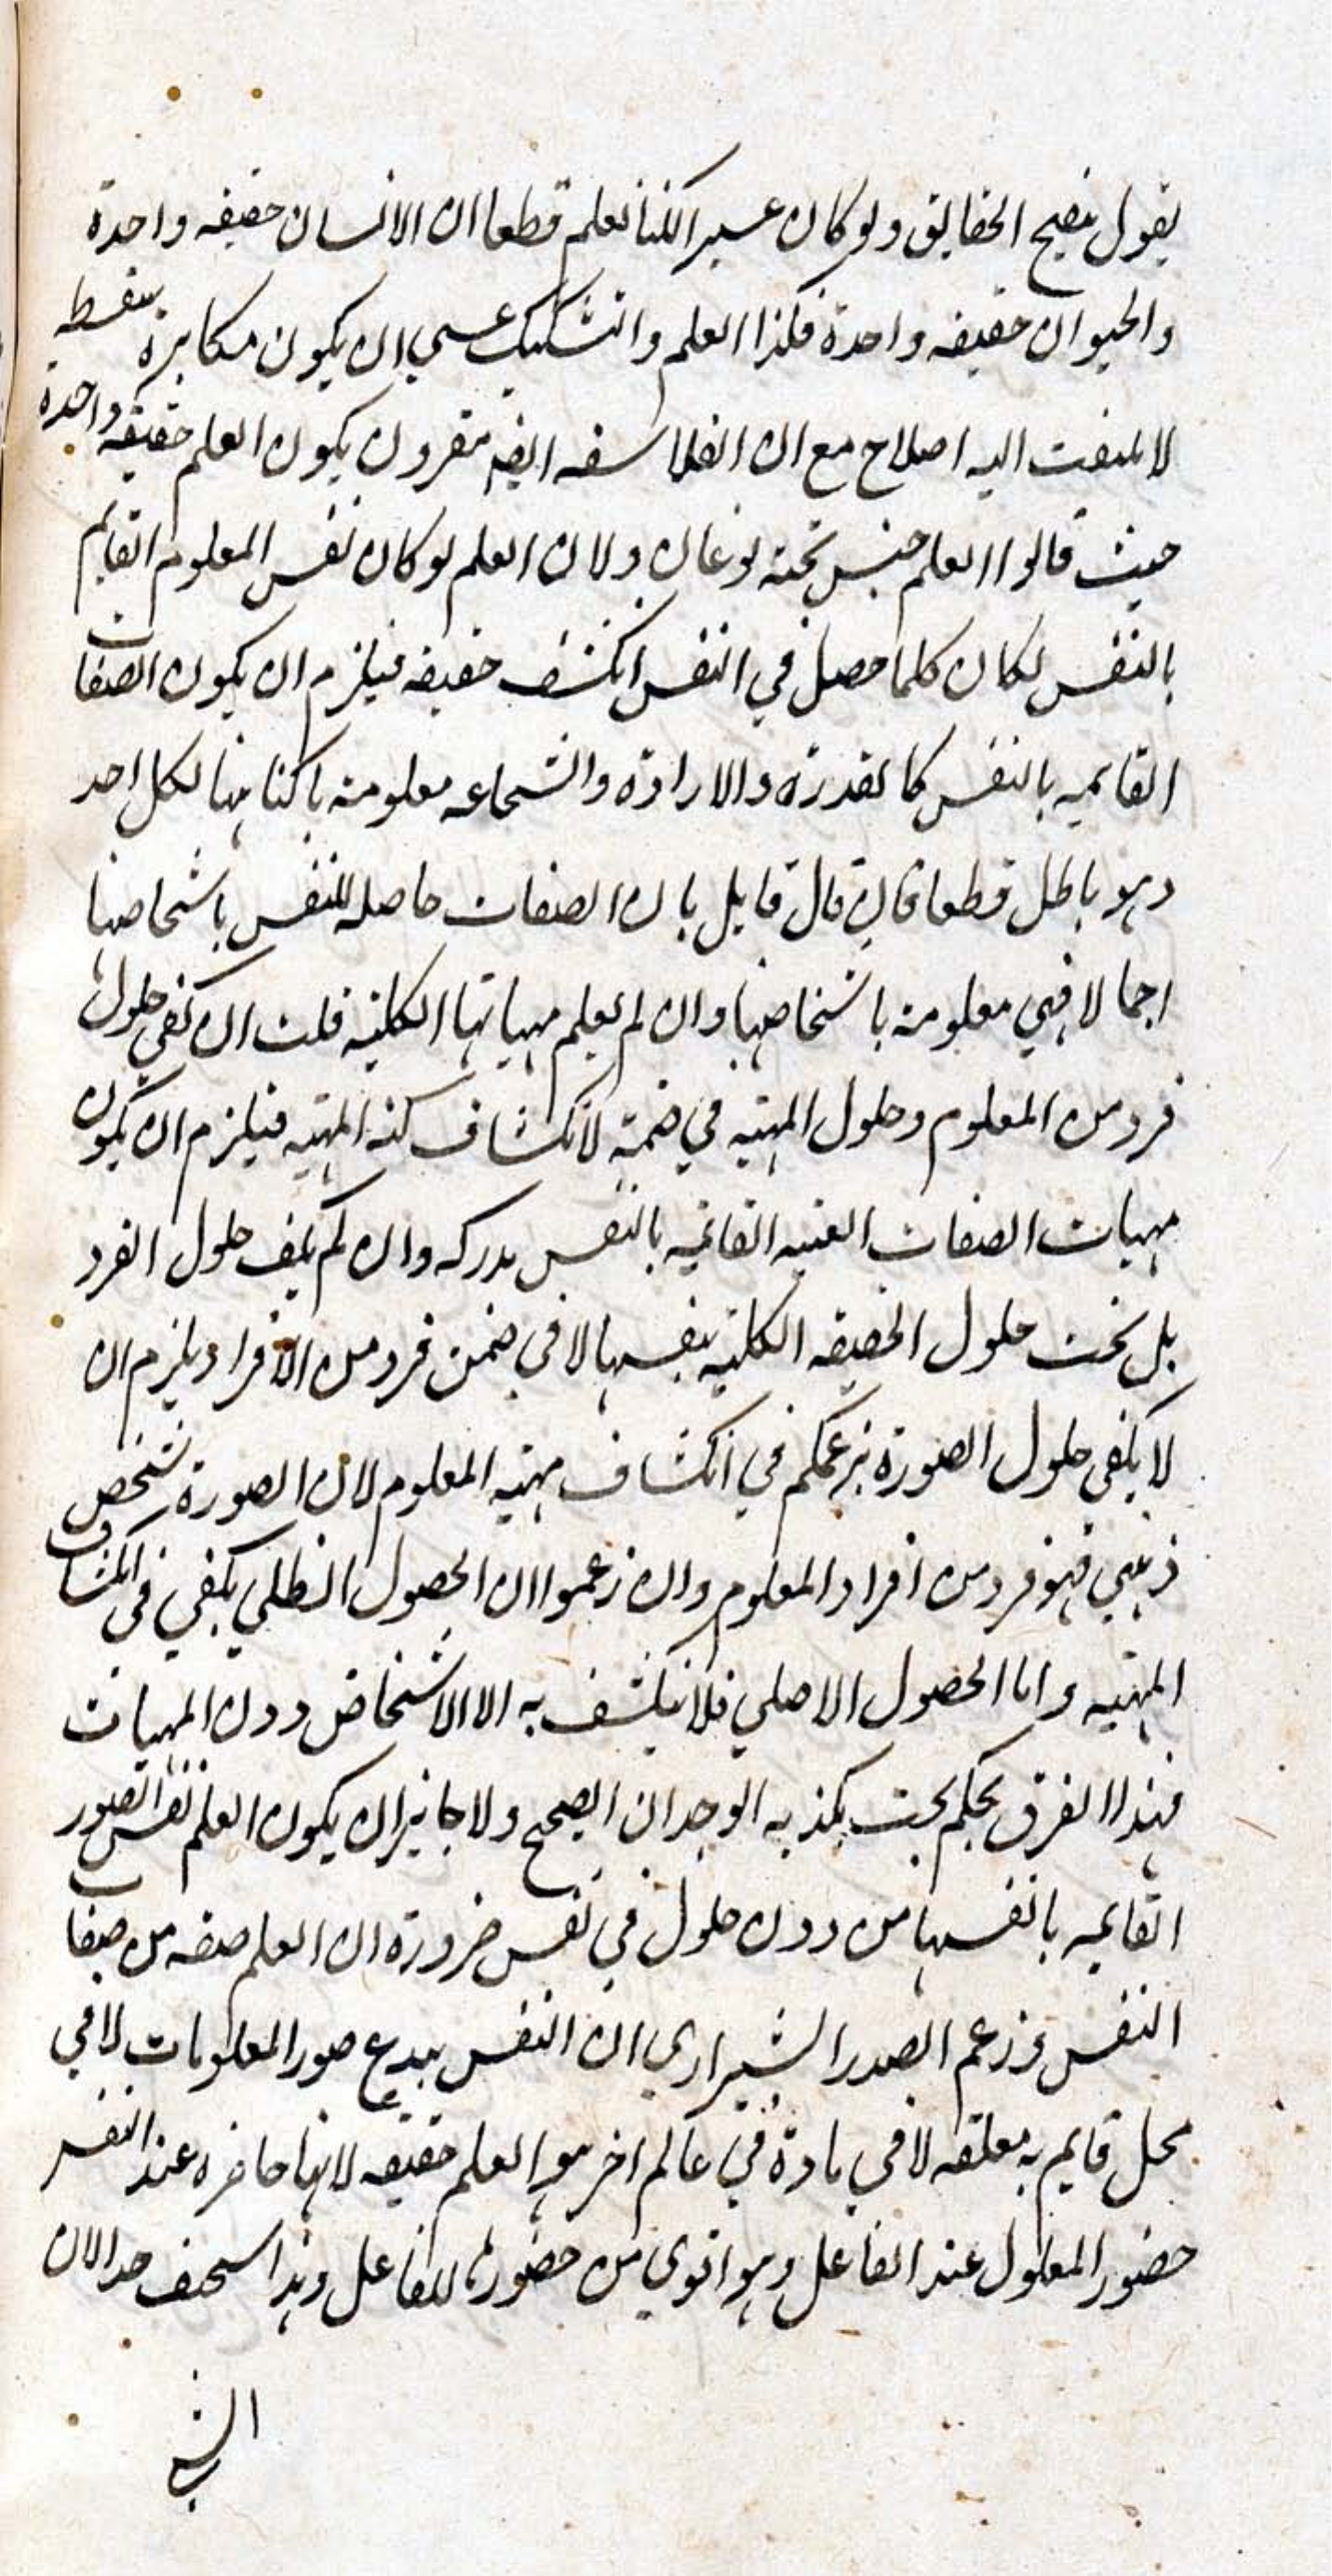 يقول بنصيح الحقايق ولو كان عسيرا لكنا نعلم قطعا ان الانسان حقيقه واحدة
والحيوان حقيقه واحدة فكذا العلم والتشكيك عسي ان يكون مكابرة سفسطه
لا يلتفت اليه اصلاح مع ان الفلاسفه ايضا مقرون بكون العلم حقيقه واحدة
حيث قالوا العلم جنس تحته نوعان ولان العلم لو كان نفس المعلوم القايم
بالنفس لكان كلما حصل في النفس انكشف حقيقه فيلزم ان يكون الصفات
القايمه بالنفس كالقدرة والارادة والشجاعه معلومة باكناهها لكل احد
وهو باطل قطعا فان قال قايل بان الصفات حاصله للنفس باشخاصها
اجمالا فهي معلومة باشخاصها وان لم يعلم مهياتها الكليه قلت ان كفي حلول
فرد من المعلوم وحلول المهيه في ضمنه لانكشاف كنه المهيه فيلزم ان يكون
مهيات الصفات العينيه القايمه بالنفس مدركه وان لم يكف حلول الفرد
بل يجب حلول الحقيقه الكليه بنفسها لا في ضمن فرد من الافراد ويلزم ان
لا يكفي حلول الصورة بزعمكم في انكشاف مهيه المعلوم لان الصورة شخص
ذهني فهو فرد من افراد المعلوم وان زعموا ان الحصول الظلي يكفي في انكشاف
المهيه واما الحصول الاصلي فلا ينكشف به الا الاشخاص دون المهيات
فهذا الفرق تحكم بحت يكذبه الوجدان الصحيح ولا جايز ان يكون العلم نفس الصور
القايمه بانفسها من دون حلول في نفس ضرورة ان العلم صفه من صفات
النفس وزعم الصدر الشيرازي ان النفس يبدع صور المعلومات لا في
محل قايم به معلقه لا في مادة في عالم اخر هو العلم حقيقه لانها حاضره عند النفس
حضور المعلول عند الفاعل وهو اقوي من حضورها للقابل وهذا سخيف جدا لان
الش